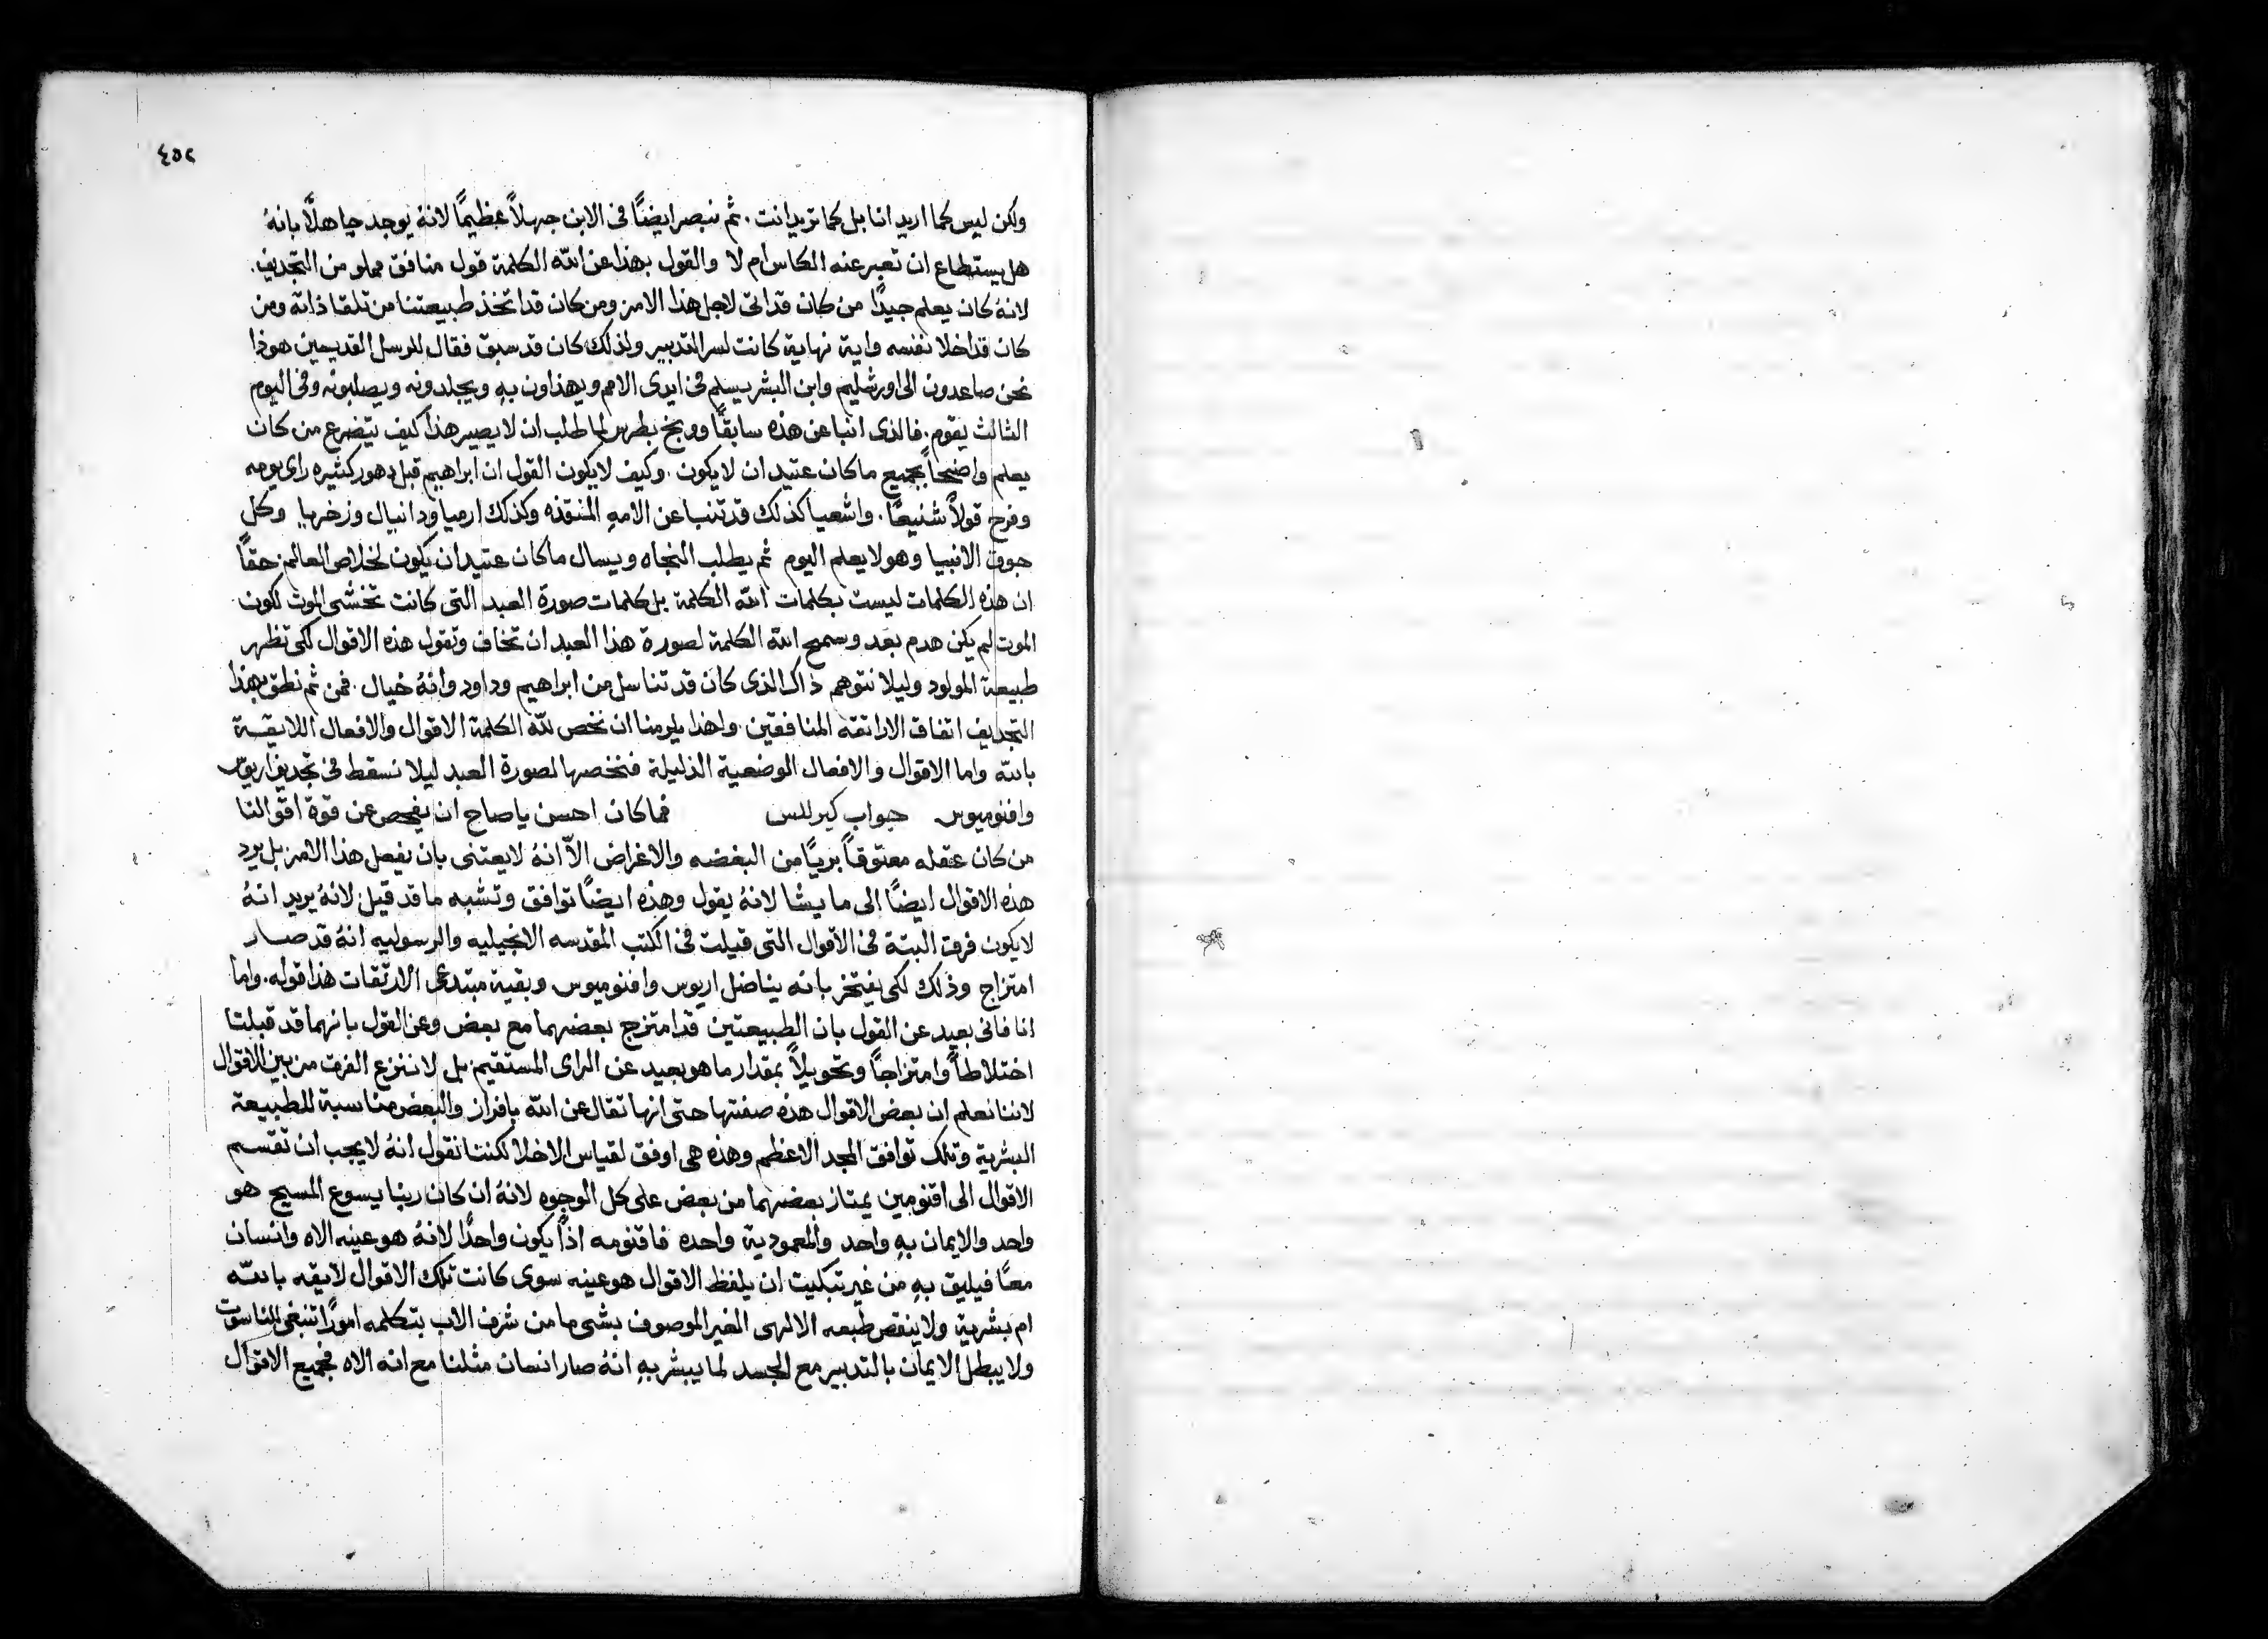 ٤٥٢
ولكن ليس كما اريد انا بل كما تريد انت. ثم نبصر ايضًا فى الابن جهلاً عظيمًا لانهُ يوجد جاهلاً بانهُ
هل يستطاع ان تعبر عنه الكاس ام لا والقول بهذا عن الله الكلمة قول منافق مملو من التجديف.
لانهُ كان يعلم جيدًا من كان قد اتى لاجل هذا الامر ومن كان قد اتخذ طبيعتنا من تلقا ذاته ومن
كان قد اخلا نفسه واية نهاية كانت لسر التدبير ولذلك كان قد سبق فقال للرسل القديسين هوذا
نحن صاعدون الى اورشليم وابن البشر يسلم فى ايدى الامم ويهذاون بهِ ويجلدونه ويصلبونه وفى اليوم
الثالث يقوم. فالذى انبا عن هذه سابقًا ووبخ بطرس لما طلب ان لا يصير هذا كيف يتضرع من كان
يعلم واضحاً بجميع ما كان عتيد ان لا يكون. وكيف لا يكون القول ان ابراهيم قبل دهور كثيره راى يومه
وفرح قولاً شنيعًا. واشعيا كذلك قد تنبا عن الامهِ المنقذه وكذلك ارميا ودانيال وزخريا وكل
جوق الانبيا وهو لا يعلم اليوم ثم يطلب النجاه ويسال ما كان عتيد ان يكون لخلاص العالم. حقًا
ان هذه الكلمات ليست بكلمات الله الكلمة بل كلمات صورة العبد التى كانت تخشى الموت لكون
الموت لم يكن هدم بعد وسمح الله الكلمة لصورة هذا العبد ان تخاف وتقول هذه الاقوال لكى تظهر
طبيعة المولود وليلا نتوهم ذاك الذى كان قد تناسل من ابراهيم وداود وانهُ خيال. فمن ثم نطق بهذا
التجديف اتفاق الاراتقه المنافقين. ولهذا يلزمنا ان نخص لله الكلمة الاقوال والافعال اللايقـة
بالله واما الاقوال والافعال الوضعية الذليلة فنخصها لصورة العبد ليلا نسقط فى تجديف اريوس
وافنوميوس جواب كيرللس فما كان احسن يا صاح ان يفحص عن قوة اقوالنا
من كان عقله معتوقاً بريًا من البغضه والاغراض الاّ انهُ لا يعتنى بان يفعل هذا الامر بل يرد
هذه الاقوال ايضًا الى ما يشا لانهُ يقول وهذه ايضًا توافق وتشبه ما قد قيل لانهُ يريد انهُ
لا يكون فرق البتة فى الاقوال التى قيلت فى الكتب المقدسه الانجيليه والرسوليه انهُ قد صار
امتزاج وذلك لكى يفتخر بانه يناضل اريوس وافنوميوس وبقية مبتدعى الارتقات هذا قوله. واما
انا فانى بعيد عن القول بان الطبيعتين قد امتزج بعضهما مع بعض وعن القول بانهما قد قبلتا
اختلاطاً وامتزاجًا وتحويلاً بمقدار ما هو بعيد عن الراى المستقيم بل لا ننزع الفرق من بين الاقوال
لاننا نعلم ان بعض الاقوال هذه صفتها حتى انها تقال عن الله بافراز والبعض مناسبة للطبيعة
البشرية وتلك توافق المجد الاعظم وهذه هى اوفق لقياس الاخلا لكننا نقول انهُ لا يجب ان تقسـم
الاقوال الى اقنومين يمتاز بعضهما من بعض على كل الوجوه لانهُ ان كان ربنا يسوع المسيح هو
واحد والايمان بهِ واحد والمعمودية واحده فاقنومه اذًا يكون واحدًا لانهُ هو عينه الاه وانسان
معًا فيليق بهِ من غير تبكيت ان يلفظ الاقوال هو عينه سوى كانت تلك الاقوال لايقه بالله
ام بشرية ولا ينقص طبعه الالهى الغير الموصوف بشى ما من شرف الاب بتكلمه امورًا تنبغى للناسوت
ولا يبطل الايمان بالتدبير مع الجسد لما يبشر بهِ انهُ صار انسان مثلنا مع انه الاه فجميع الاقوال